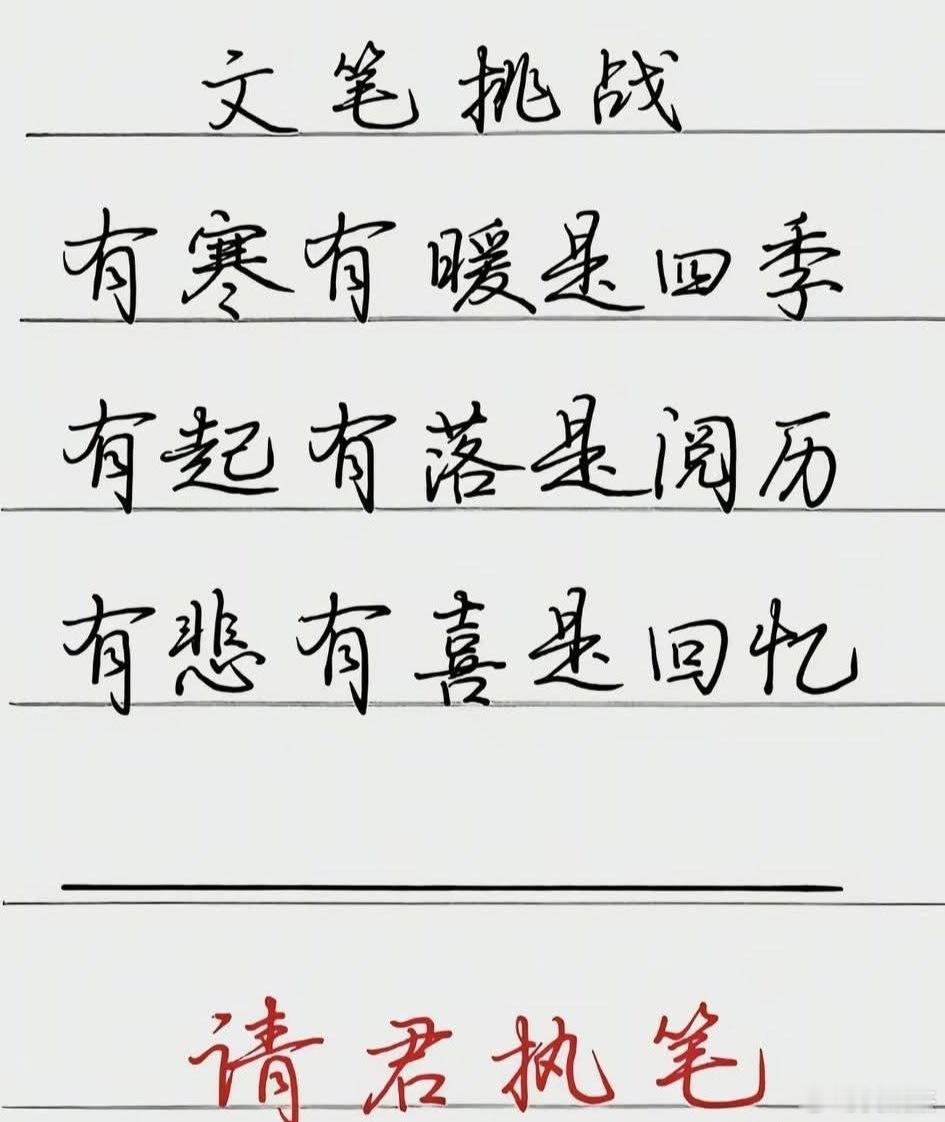 文笔挑战
有寒有暖是四季
有起有落是阅历
有悲有喜是回忆
请君执笔